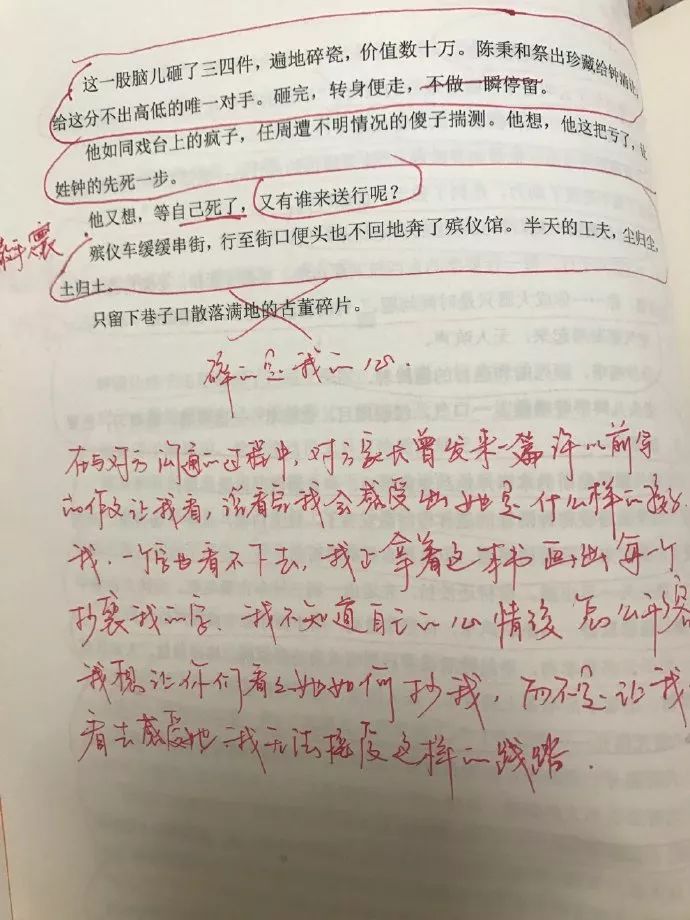 这一股脑儿砸了三四件，遍地碎瓷，价值数十万。陈秉和祭出珍藏给钟
给这分不出高低的唯一对手。砸完，转身便走，不做一瞬停留。
他如同戏台上的疯子，任周遭不明情况的傻子揣测。他想，他这把亏了，让
姓钟的先死一步。
他又想，等自己死了，又有谁来送行呢？
殡仪车缓缓串街，行至街口便头也不回地奔了殡仪馆。半天的工夫，尘归尘，
土归土。
只留下巷子口散落满地的古董碎片。
碎的是我的心.
在与对方沟通的过程中，对方家长曾发来一篇许以前写
的作文让我看，说看完我会感受出她是什么样的孩子
我，一个字也看不下去，我上拿着这本书画出每一个
抄袭我的字. 我不知道自己的心情该怎么平缓
我想让你们看之她如何抄我，而不是让我
看去感受她. 我无法接受这样的践踏.